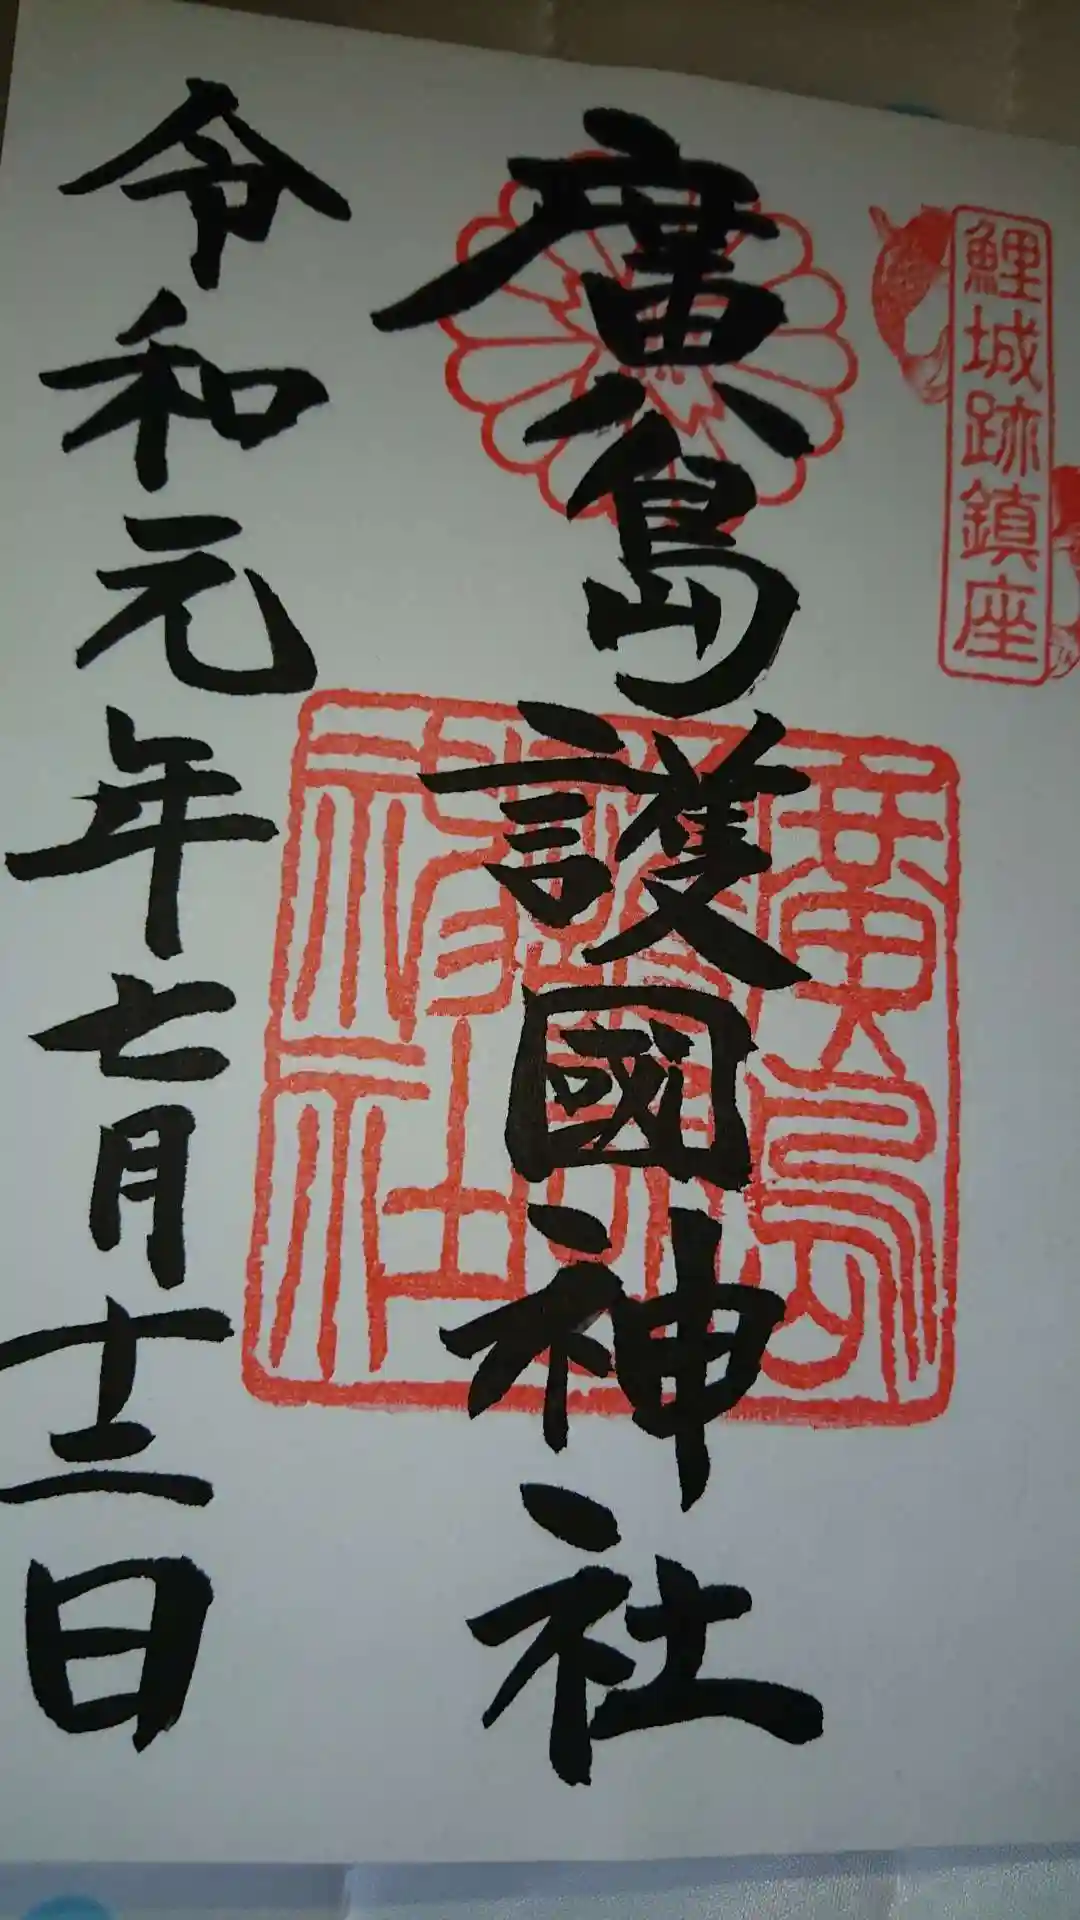 鯉城跡鎮座
廣島護國神社
廣島護國神社
令和元年七月十二日